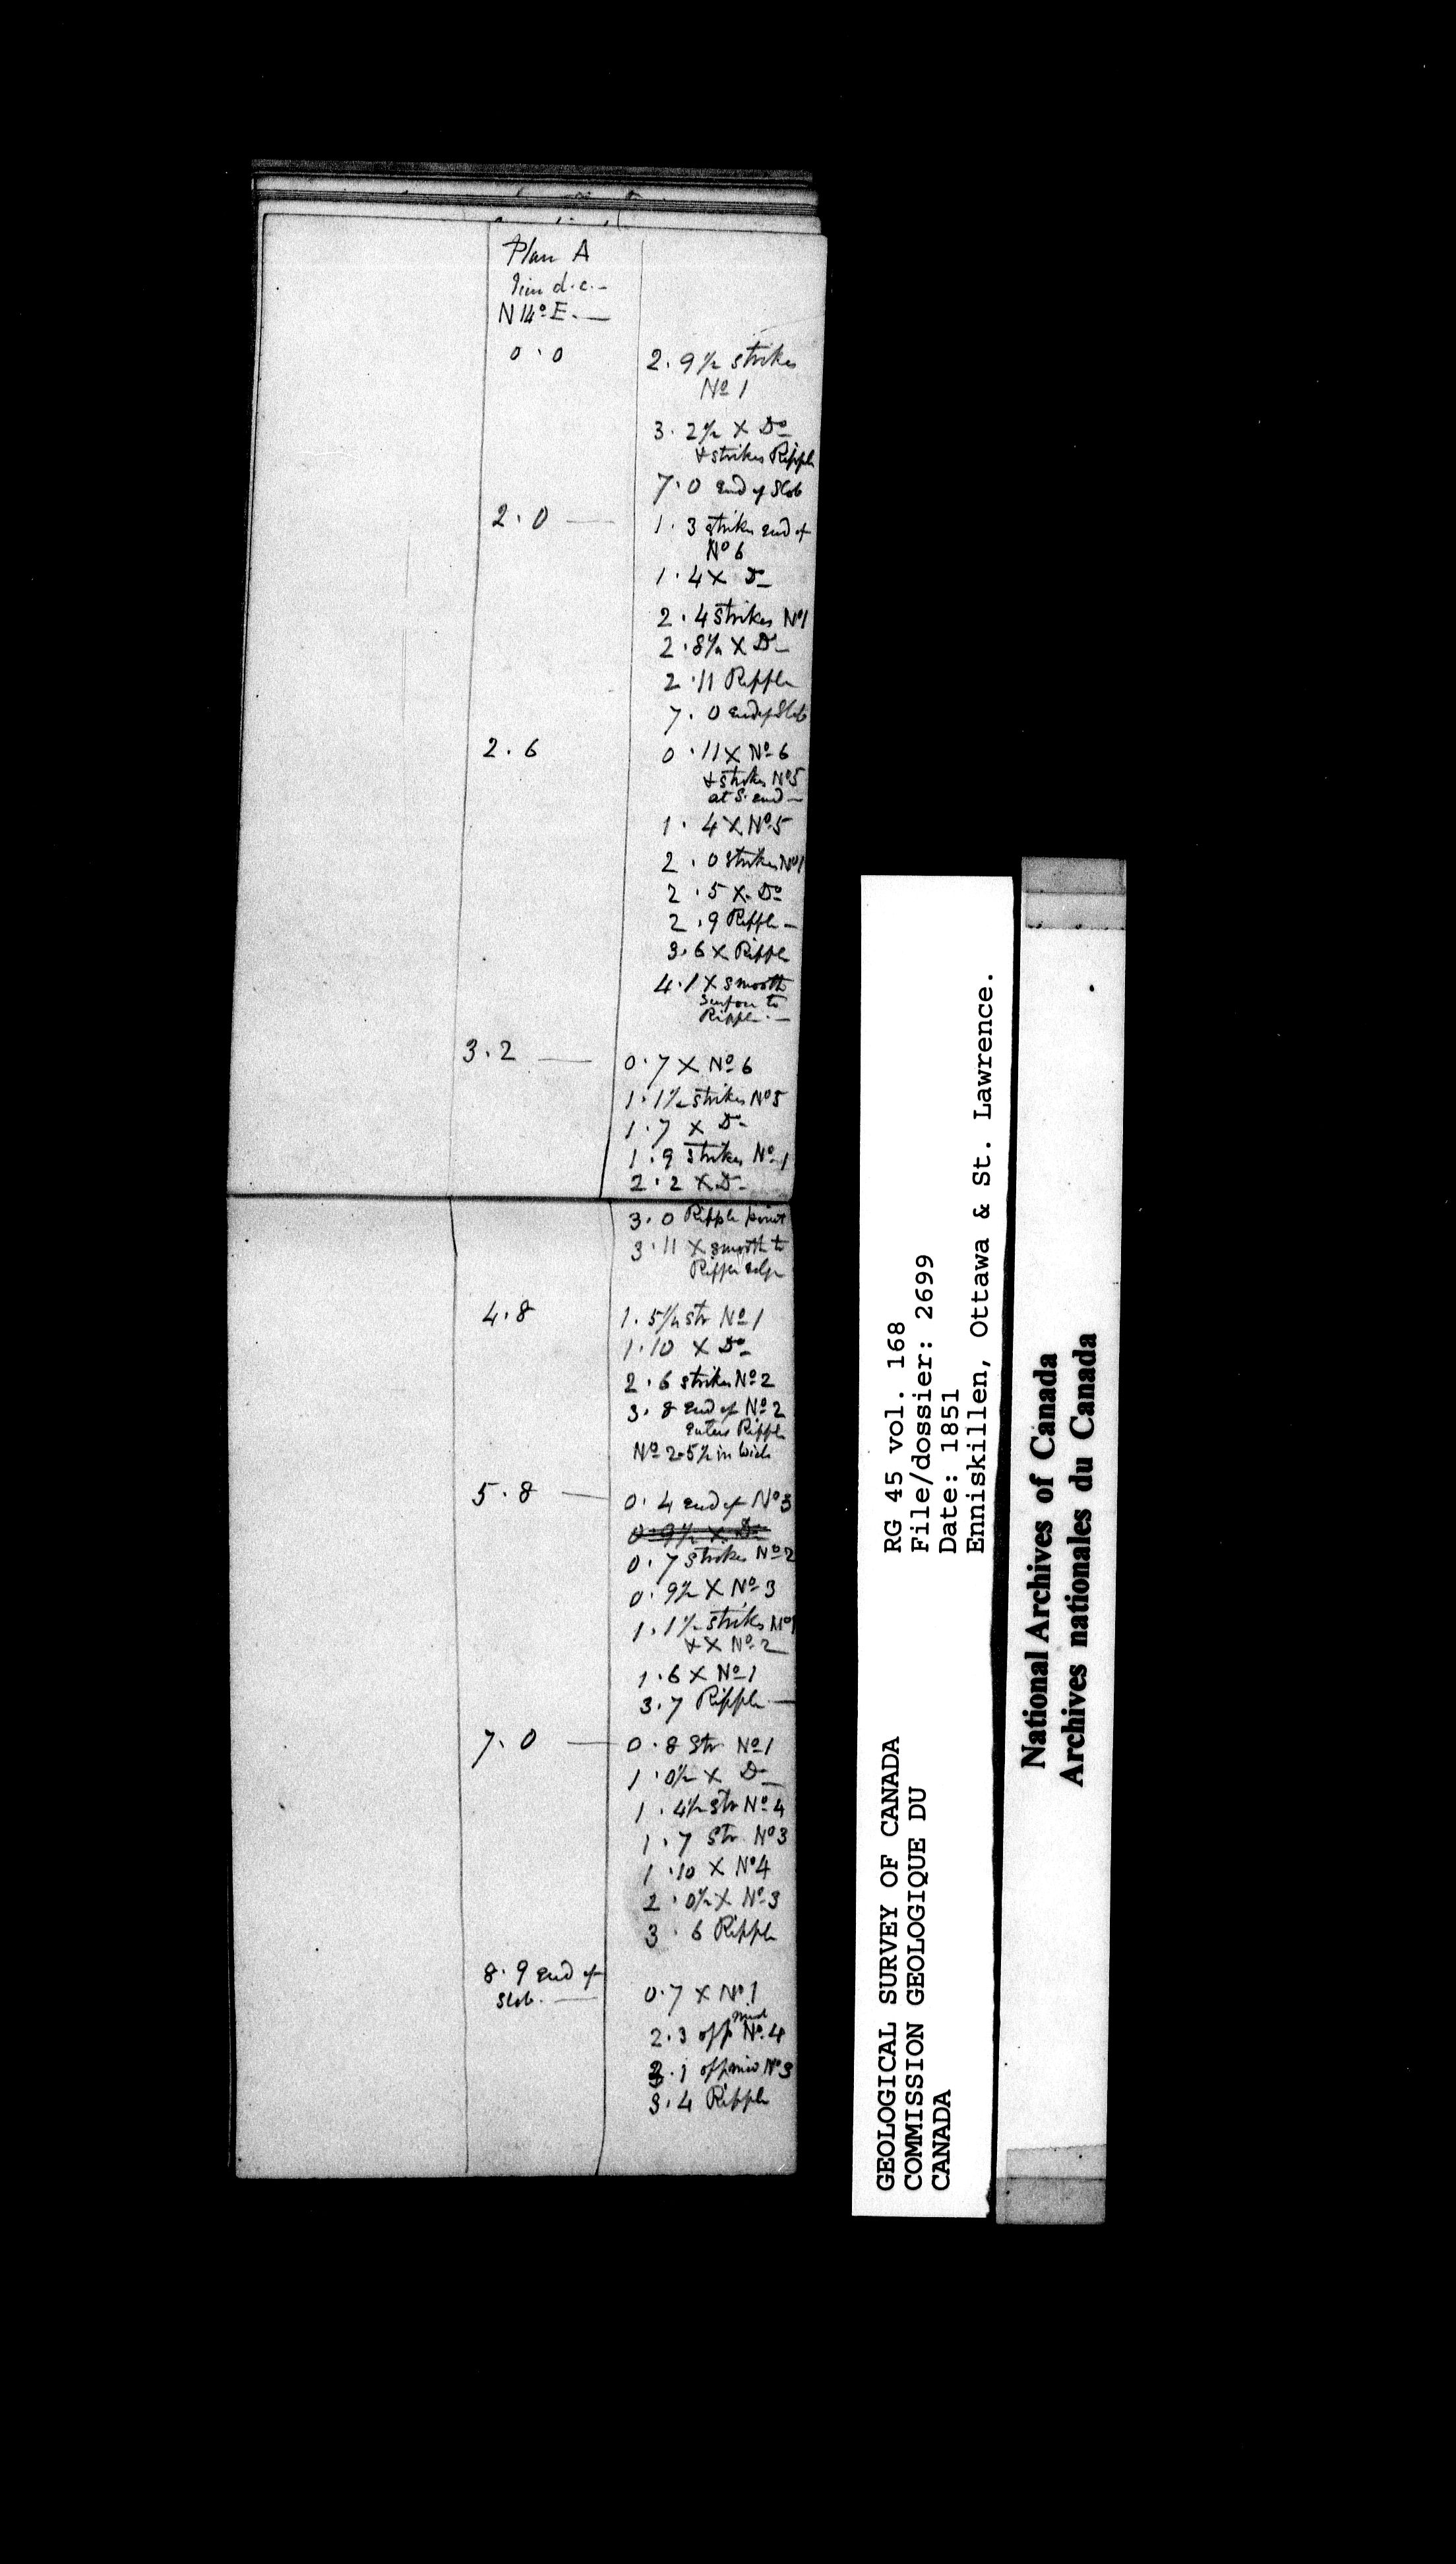 Plan A
d.c.-
N 14° E. —
0.0
2.9½ strikes
No 1
3.2½ X Do
& strikes Ripple
7.0 End of Slab
2.0 —
1.3 strikes end of
No 6
1.4 X Do
2.4 strikes No 1
2.8½ X Do
2.11 Ripple
7.0 end of Slab
2.6
0.11 X No 6
& strikes No 5
at S. end —
1.4 X No 5
2.0 strikes No 1
2.5 X Do
2.9 Ripple —
3.6 X Ripple
4.1 X smooth
to
Ripple. —
3.2 —
0.7 X No 6
1.1½ strikes No 5
1.7 X Do
1.9 strikes No 1
2.2 X Do
3.0 Ripple point
3.11 X smooth to
Ripple edge
4.8
1.5½ str No 1
1.10 X Do
2.6 strikes No 2
3.8 end of No 2
enters Ripple
No 2 = 5½ in wide
5.8 —
0.4 end of No 3
0.9½ X Do
0.7 strikes No 2
0.9½ X No 3
1.1½ strikes No 1
& X No 2
1.6 X No 1
3.7 Ripple —
7.0 —
0.8 Str No 1
1.0½ X Do
1.4½ str No 4
1.7 Str. No 3
1.10 X No 4
2.0½ X No 3
3.6 Ripple
8.9 End of
Slab. —
0.7 X No 1
2.3 opp mid No 4
3.1 opp mid No 3
3.4 Ripple
GEOLOGICAL SURVEY OF CANADA
COMMISSION GEOLOGIQUE DU
CANADA
RG 45 vol. 168
File/dossier: 2699
Date: 1851
Enniskillen, Ottawa & St. Lawrence.
National Archives of Canada
Archives nationales du Canada